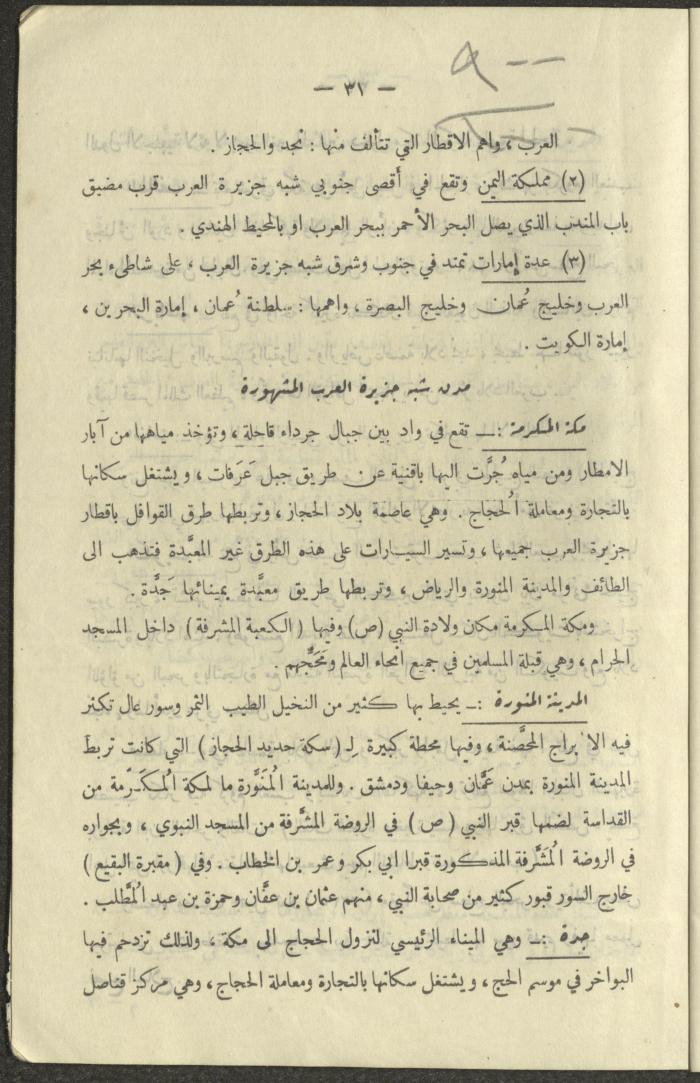 ٩ --
— ٣١ —
العرب ، واهم الاقطار التي تتألف منها : نجد والحجاز .
(٢) مملكة اليمن وتقع في أقصى جنوبي شبه جزيرة العرب قرب مضيق
باب المندب الذي يصل البحر الأحمر ببحر العرب او بالمحيط الهندي .
(٣) عدة إمارات تمتد في جنوب وشرق شبه جزيرة العرب ، على شاطىء بحر
العرب وخليج عُمان وخليج البصرة ، واهمها : سلطنة عُمان ، إمارة البحرين ،
إمارة الكويت .
مدن شبه جزيرة العرب المشهورة
مكة المكرمة :ــ تقع في واد بين جبال جرداء قاحلة ، وتؤخذ مياهها من آبار
الامطار ومن مياه جُرَّت اليها باقنية عن طريق جبل عَرَفات ، ويشتغل سكانها
بالتجارة ومعاملة الُحجاج . وهي عاصمة بلاد الحجاز ، وتربطها طرق القوافل باقطار
جزيرة العرب جميعها ، وتسير السيارات على هذه الطرق غير المعبَّدة فتذهب الى
الطائف والمدينة المنورة والرياض ، وتربطها طريق معبَّدة بمينائها جَدَّة .
ومكة المكرمة مكان ولادة النبي (ص) وفيها ( الكعبة المشرفة ) داخل المسجد
الحرام ، وهي قبلة المسلمين في جميع انحاء العالم ومَحَجُّهم .
المدينة المنورة :ــ يحيط بها كثير من النخيل الطيب الثمر وسور عال تكثر
فيه الابراج المحصَّنة ، وفيها محطة كبيرة لـ ( سكة حديد الحجاز ) التي كانت تربط
المدينة المنورة بمدن عَمَّان وحيفا ودمشق . وللمدينة الُمنَوَّرة ما لمكة الُمكَرَّمة من
القداسة لضمها قبر النبي ( ص ) في الروضة المشَّرفة من المسجد النبوي ، وبجواره
في الروضة الُمشَّرفة المذكورة قبرا ابي بكر وعمر بن الخطاب . وفي ( مقبرة البقيع )
خارج السور قبور كثير من صحابة النبي ، منهم عثمان بن عفَّان وحمزة بن عبد الُمطَّلب .
جدة :ــ وهي الميناء الرئيسي لنزول الحجاج الى مكة ، ولذلك تزدحم فيها
البواخر في موسم الحج ، ويشتغل سكانها بالتجارة ومعاملة الحجاج ، وهي مركز قناصل